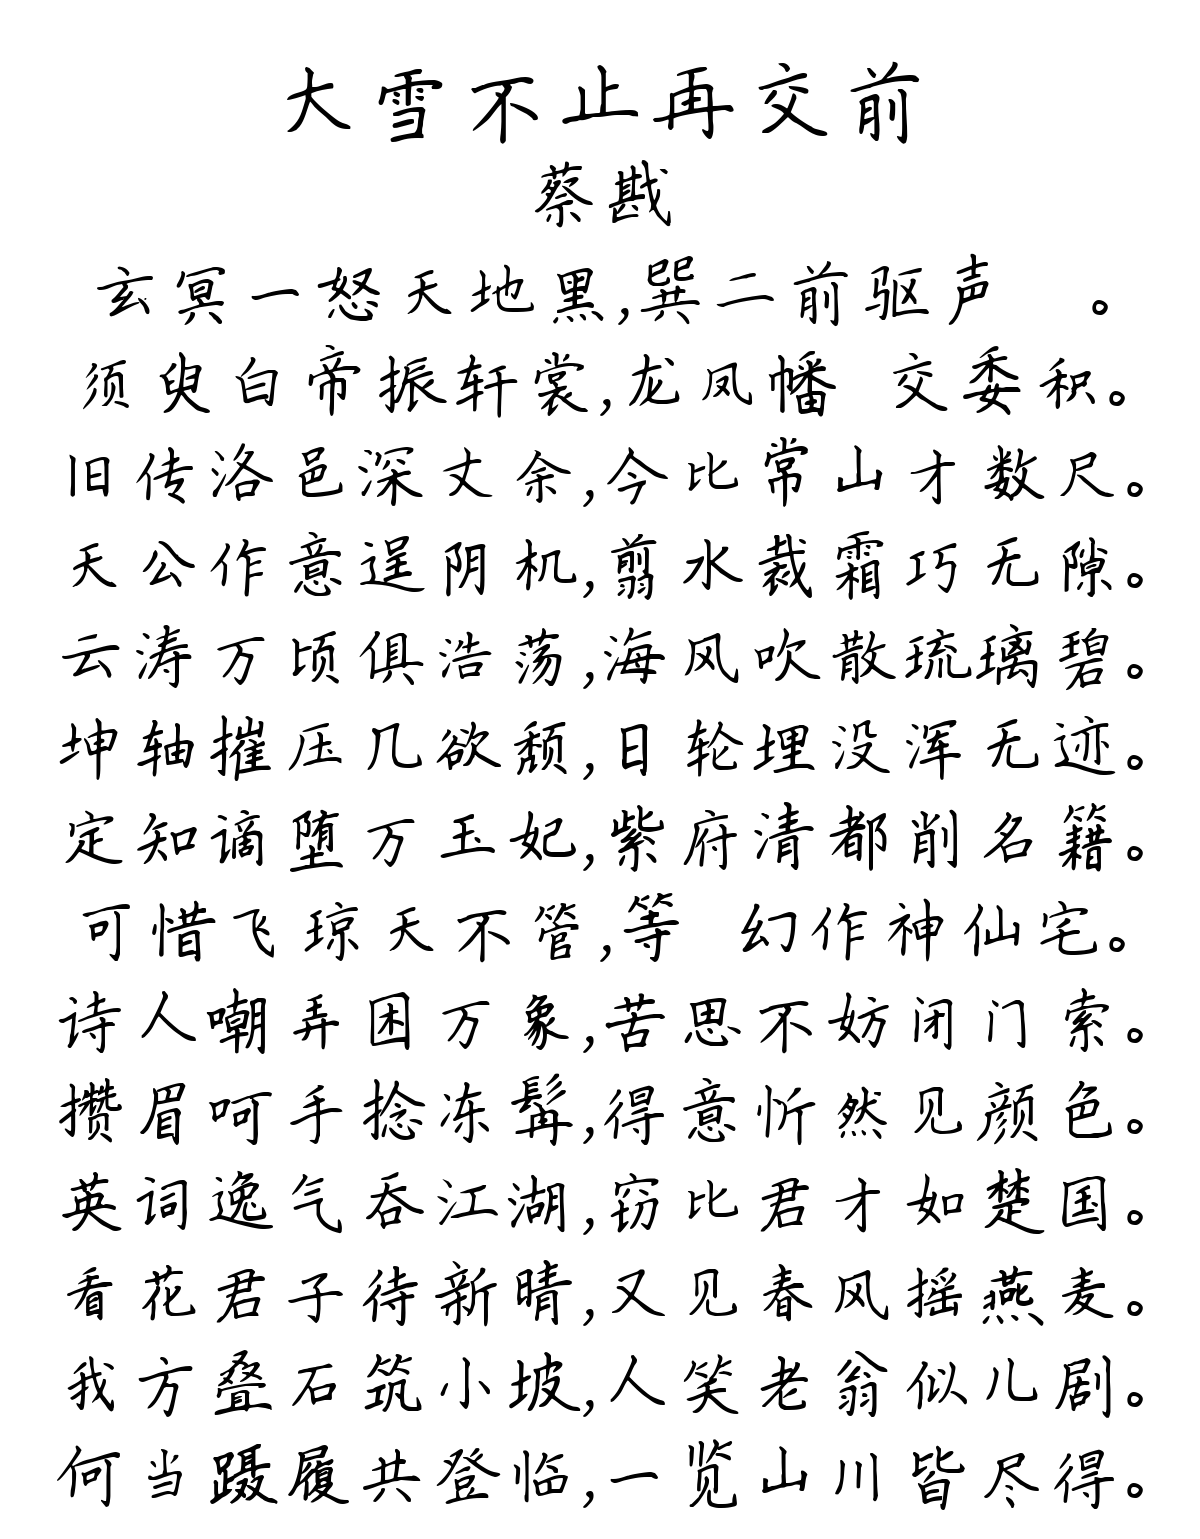 大雪不止再交前
蔡戡
玄冥一怒天地黑,巽二前驱声 。
须臾白帝振轩裳,龙凤幡 交委积。
旧传洛邑深丈余,今比常山才数尺。
天公作意逞阴机,剪水裁霜巧无隙。
云涛万顷俱浩荡,海风吹散琉璃碧。
坤轴摧压几欲颓,日轮埋没浑无迹。
定知谪堕万玉妃,紫府清都削名籍。
可惜飞琼天不管,等 幻作神仙宅。
诗人嘲弄困万象,苦思不妨闭门索。
攒眉呵手捻冻髯,得意忻然见颜色。
英词逸气吞江湖,窃比君才如楚国。
看花君子待新晴,又见春风摇燕麦。
我方叠石筑小坡,人笑老翁似儿剧。
何当蹑履共登临,一览山川皆尽得。